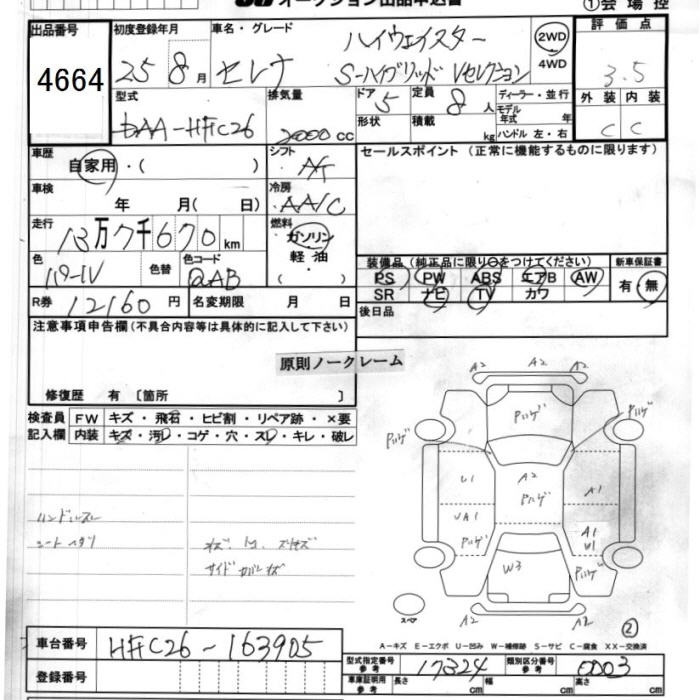 オークション出品申込書
①会場控
出品番号 初度登録年月 車名・グレード ハイウェイスター 2WD 4WD 評価点
4664 25 8月 セレナ S-ハイブリッド Vセレクション 3.5
型式 排気量 ドア 5 定員 8人 ディーラー・並行 外装 内装
DAA-HFC26 2000cc 形状 積載 kg モデル年式 年 ハンドル 左・右 C C
車歴 自家用・( ) シフト AT セールスポイント(正常に機能するものに限ります)
車検 年 月( 日) 冷房 AA/C
走行 13万7千670km 燃料 ガソリン 軽・油 ・ ( )
色 パールIV 色替 色コード QAB 装備品(純正品に限り○をつけてください) 新車保証書
PS PW ABS エアB AW 有・無
SR ナビ TV カワ
R券 12160円 名変期限 月 日 後日品
注意事項申告欄(不具合内容等は具体的に記入して下さい)
原則ノークレーム
修復歴 有 [箇所 ]
検査員記入欄 FW キズ・飛石・ヒビ割・リペア跡・×要
内装 キズ・汚レ・コゲ・穴・スレ・キレ・破レ
A2 A2 A2
Pハゲ Pハゲ Pハゲ
U1 A2 Pハゲ A1
UA1 A1 W1
Pハゲ W3 Pハゲ
A2 A2
ハンドルスレ
シートヘタリ
スペア
②
A-キズ E-エクボ U-凹み W-補修跡 S-サビ C-腐食 XX-交換済
車台番号 HFC26-163905
型式指定番号 参考 17324 類別区分番号 参考 0003
登録番号 車庫証明用 参考 長さ cm 幅 cm 高さ cm